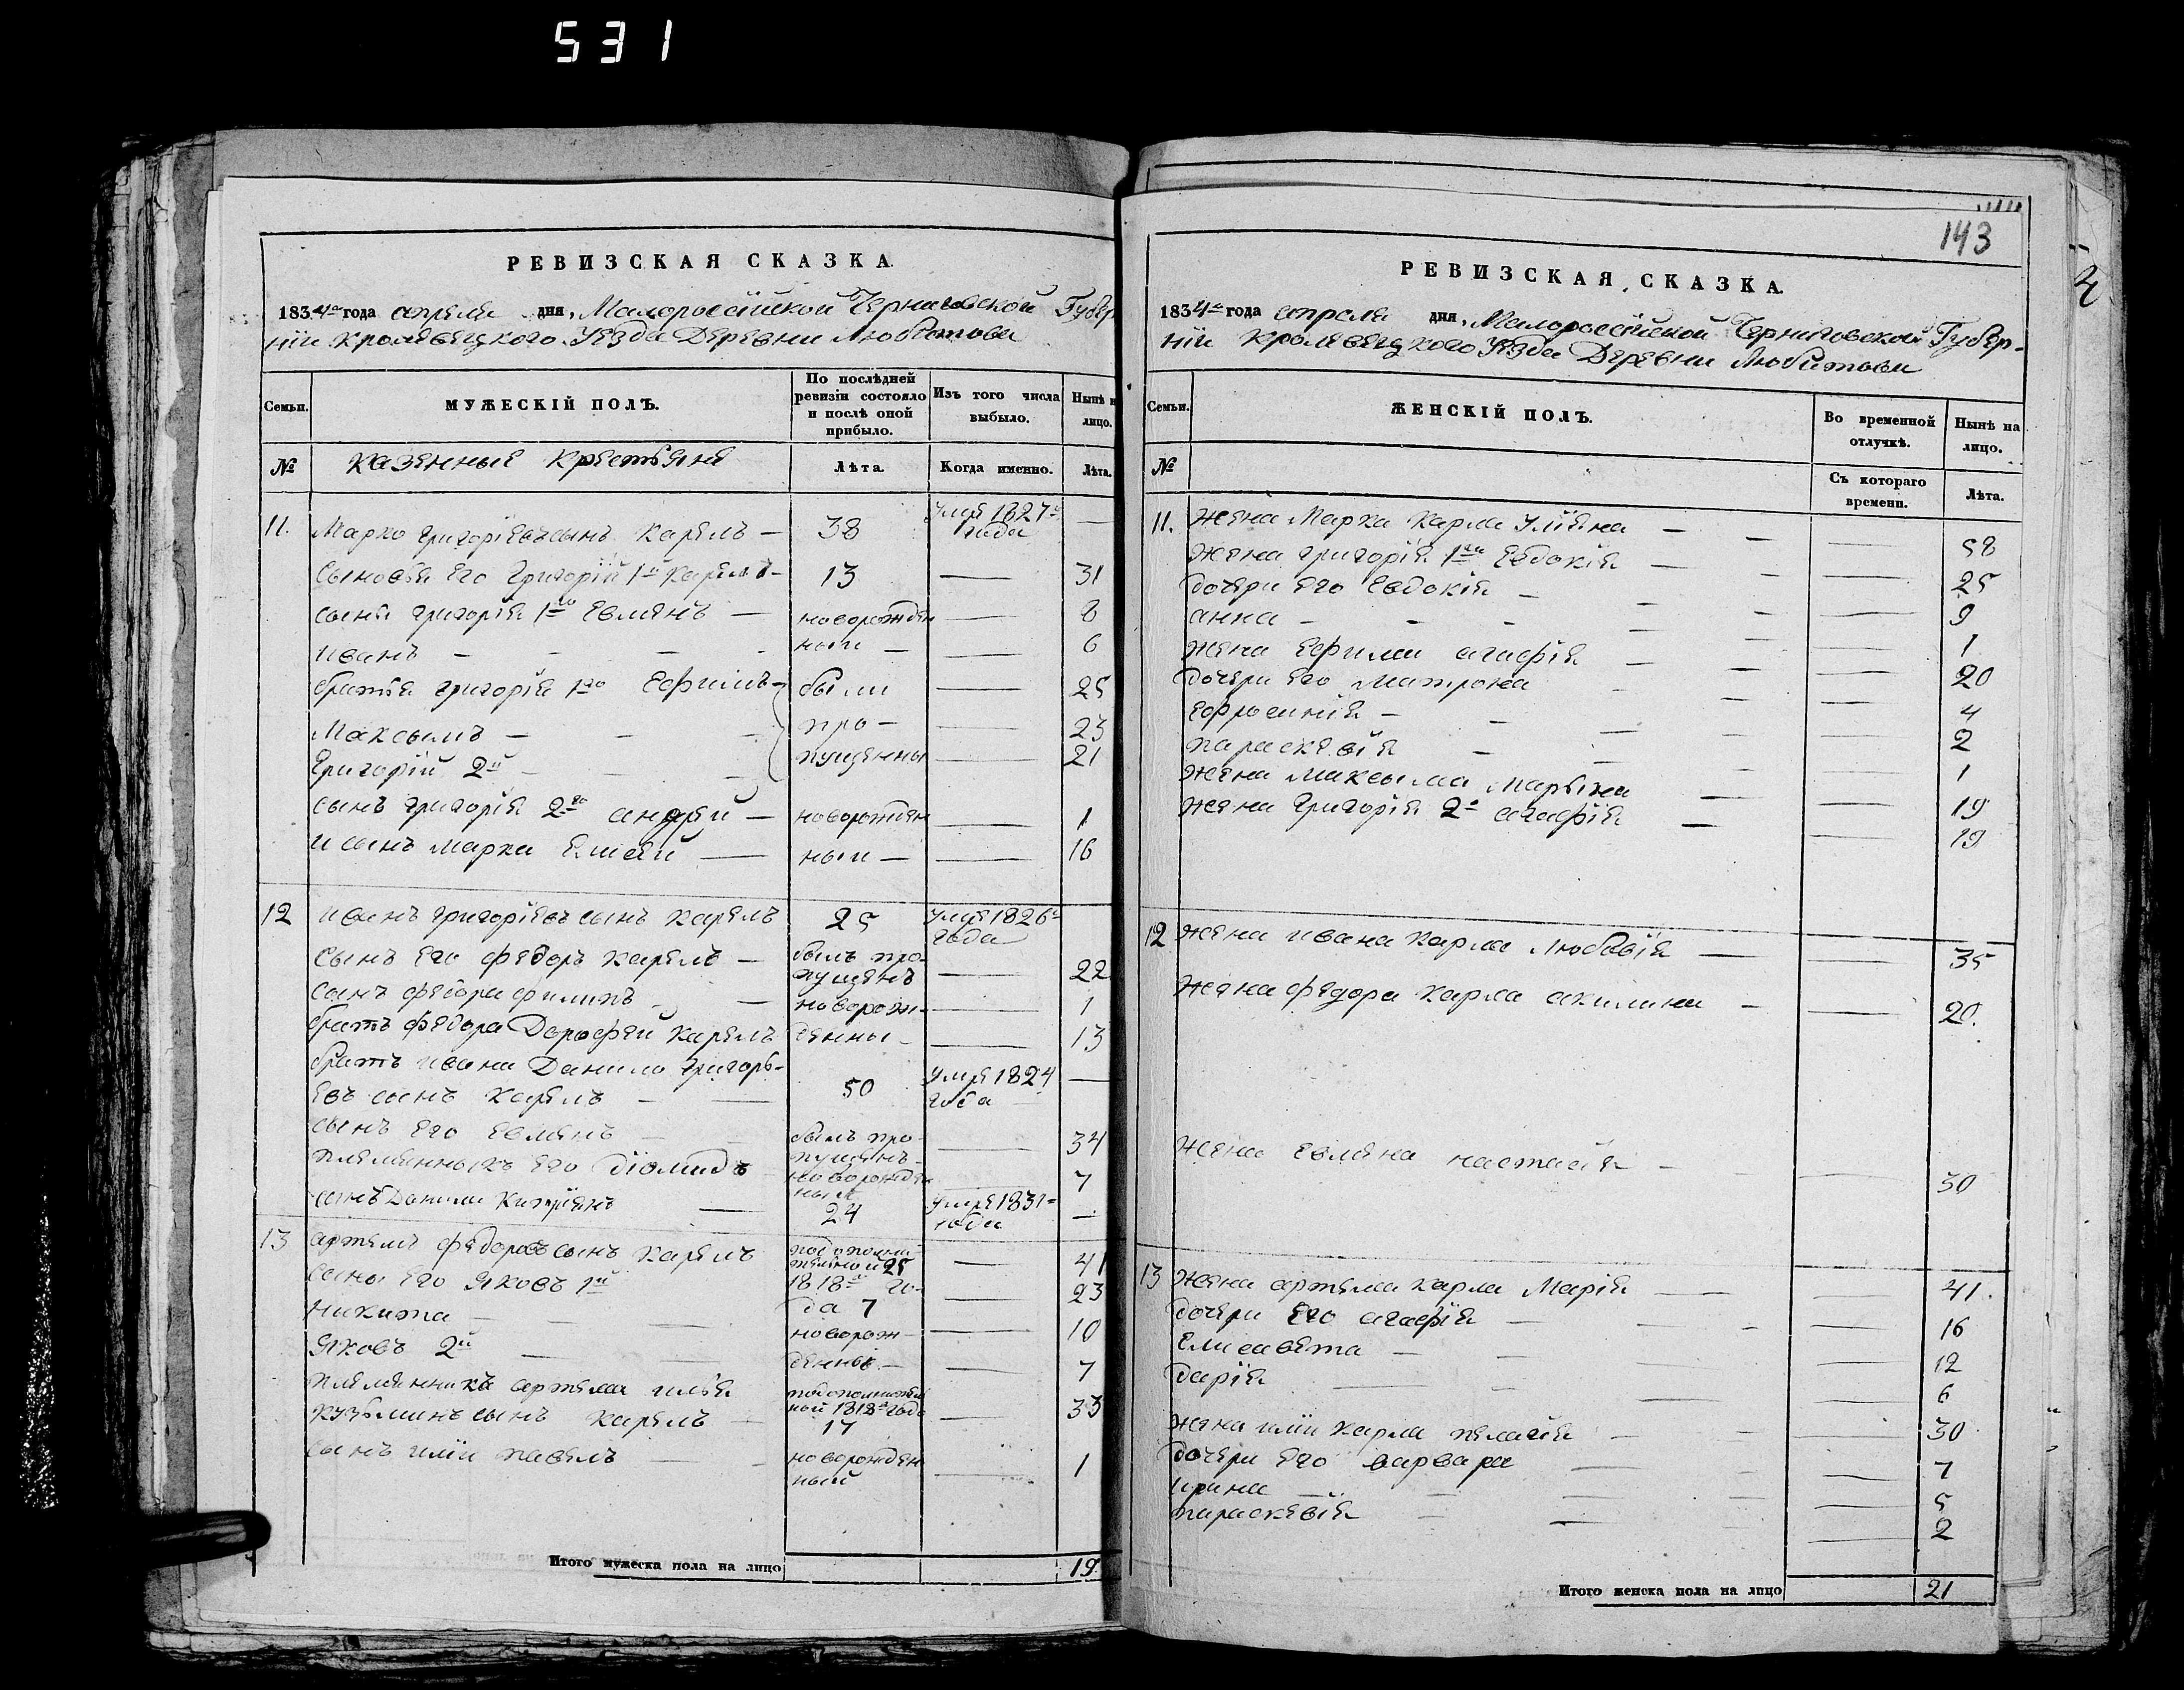 531
РЕВИЗСКАЯ СКАЗКА.
1834го года апреля дня, Малоросѣйской Черниговской Губер
ніи Кролевецкого Уѣзда Деревни Любитова
Семьи.
МУЖЕСКІЙ ПОЛЪ.
По послѣдней ревизіи состояло и послѣ оной прибыло.
Изъ того числа выбыло.
Нынѣ на лицо.
№
Казенные Крестьяне
Лѣта.
Когда именно.
Лѣта.
11. Марко Григоріевъ сынъ Карелъ — 38 умре 1827го года —
Сыновья его Григорій 1й Карелъ — 13 — 31
сыня Григорія 1го Евменъ — новорожден — 8
Иванъ - - - - ныи — — 6
братья Григорія 1го Ефимъ — были — 25
Максымъ — - - про — — 23
Григорій 2й - - - пущенны — 21
сынъ Григорія 2го андрей — новорожден — 1
и сынъ Марка Елисей — ныи — — 16
12 Иванъ Григоріевъ сынъ Карелъ 25 умре 1826го года
Сынъ его Федоръ Карелъ — былъ пропущенъ — 22
Сынъ Федора Филипъ - — новорож- — 1
братъ Федора Дорофей Карелъ денны - — 13
братъ Ивана Данило Григорь-
евъ сынъ Карелъ - — 50 умре 1824 года —
сынъ его Евменъ - - былъ пропущенъ — 34
племенныкъ его Діомидъ новорожденый — 7
сынъ Данили Кипріянъ — 24 умре 1831го года —
13 артемъ Федоровъ сынъ Карелъ по дополнительной 25 — 41
сыны его Яковъ 1й 1818го года 7 — 23
Никита - - — новорож- — 10
Яковъ 2й — — денные — — 7
племенникъ артема илья
Кузьминъ сынъ Карелъ - по дополнительной 1818го года 17 — 33
сынъ иліи павелъ — - новорожденный — 1
Итого мужеска пола на лицо 19.
143
РЕВИЗСКАЯ СКАЗКА.
1834го года апреля дня, Малоросѣйской Черниговской Губер-
ніи Кролевецкого Уѣзда Деревни Любитови
Семьи.
ЖЕНСКІЙ ПОЛЪ.
Во временной отлучкѣ.
Нынѣ на лицо.
№
Съ котораго времени.
Лѣта.
11. жена Марка Карла Уліяна - - — 58
жена Григорія 1го Евдокія — - — 25
дочери его Евдокія - - - — 9
анна - - - - - — 1
жена Ефима агафія — - — 20
дочери его Матрона - - — 4
Ефросинія - - - - — 2
параскевія - - - — 1
жена Максыма Марьяна — — 19
жена Григорія 2го агафія — — 19
12 жена Ивана Карла Любовія — — 35
жена Федора Карла акилина - — 20.
жена Евмена настасія - - — 30
13 жена артема Карла Марія — — — 41.
дочери его агафія — - - — 16
Елисавета - - - — 12
дарія — - — — 6
жена иліи Карла пелагія - - — 30
дочери его варвара — — — 7
ирина — - — - — 5
параскевія - — - — 2
Итого женска пола на лицо 21